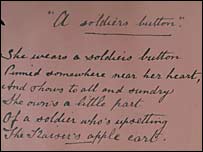 "A soldiers button".
She wears a soldiers button
Pinned somewhere near her heart,
And shows to all and sundry
She own's a little part
Of a soldier who's upsetting
The Kaiser's apple cart.